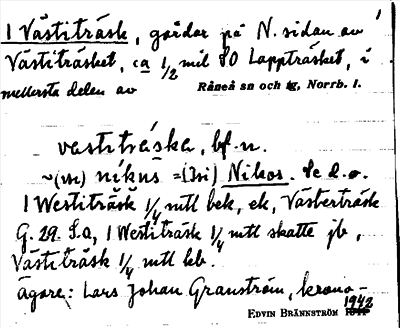 1 Västiträsk, gårdar på N. sidan av
Västiträsket, ca 1/2 mil SO Lappträsket, i
mellersta delen av Råneå sn och tg, Norrb. l.
vastitráska, bf. n.
~(m) nikus =(3ri) Nikos. Se d. o.
1 Westiträsk 1/4 mtl bek, ek, Västerträsk
G. 29. S.a, 1 Westiträsk 1/4 mtl skatte jb,
Västiträsk 1/4 mtl kb.
ägare: Lars Johan Granström, krono-
EDVIN BRÄNNSTRÖM 1942